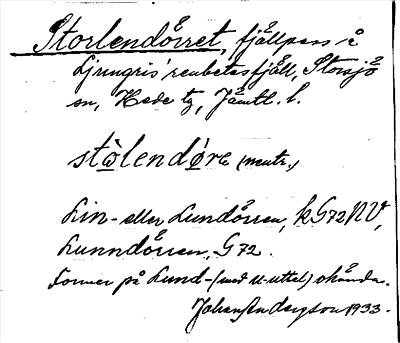 Storlendörret, fjällpass i
Ljungris' renbetesfjäll, Storsjö
sn, Hede tg, Jämtl. l.
stòlendǿre (neutr.)
Lin- eller Lundörren, k G72 NV,
Lunndörren, G 72.
Former på Lund- (med u-uttal) okända.
Johan Andersson 1933.